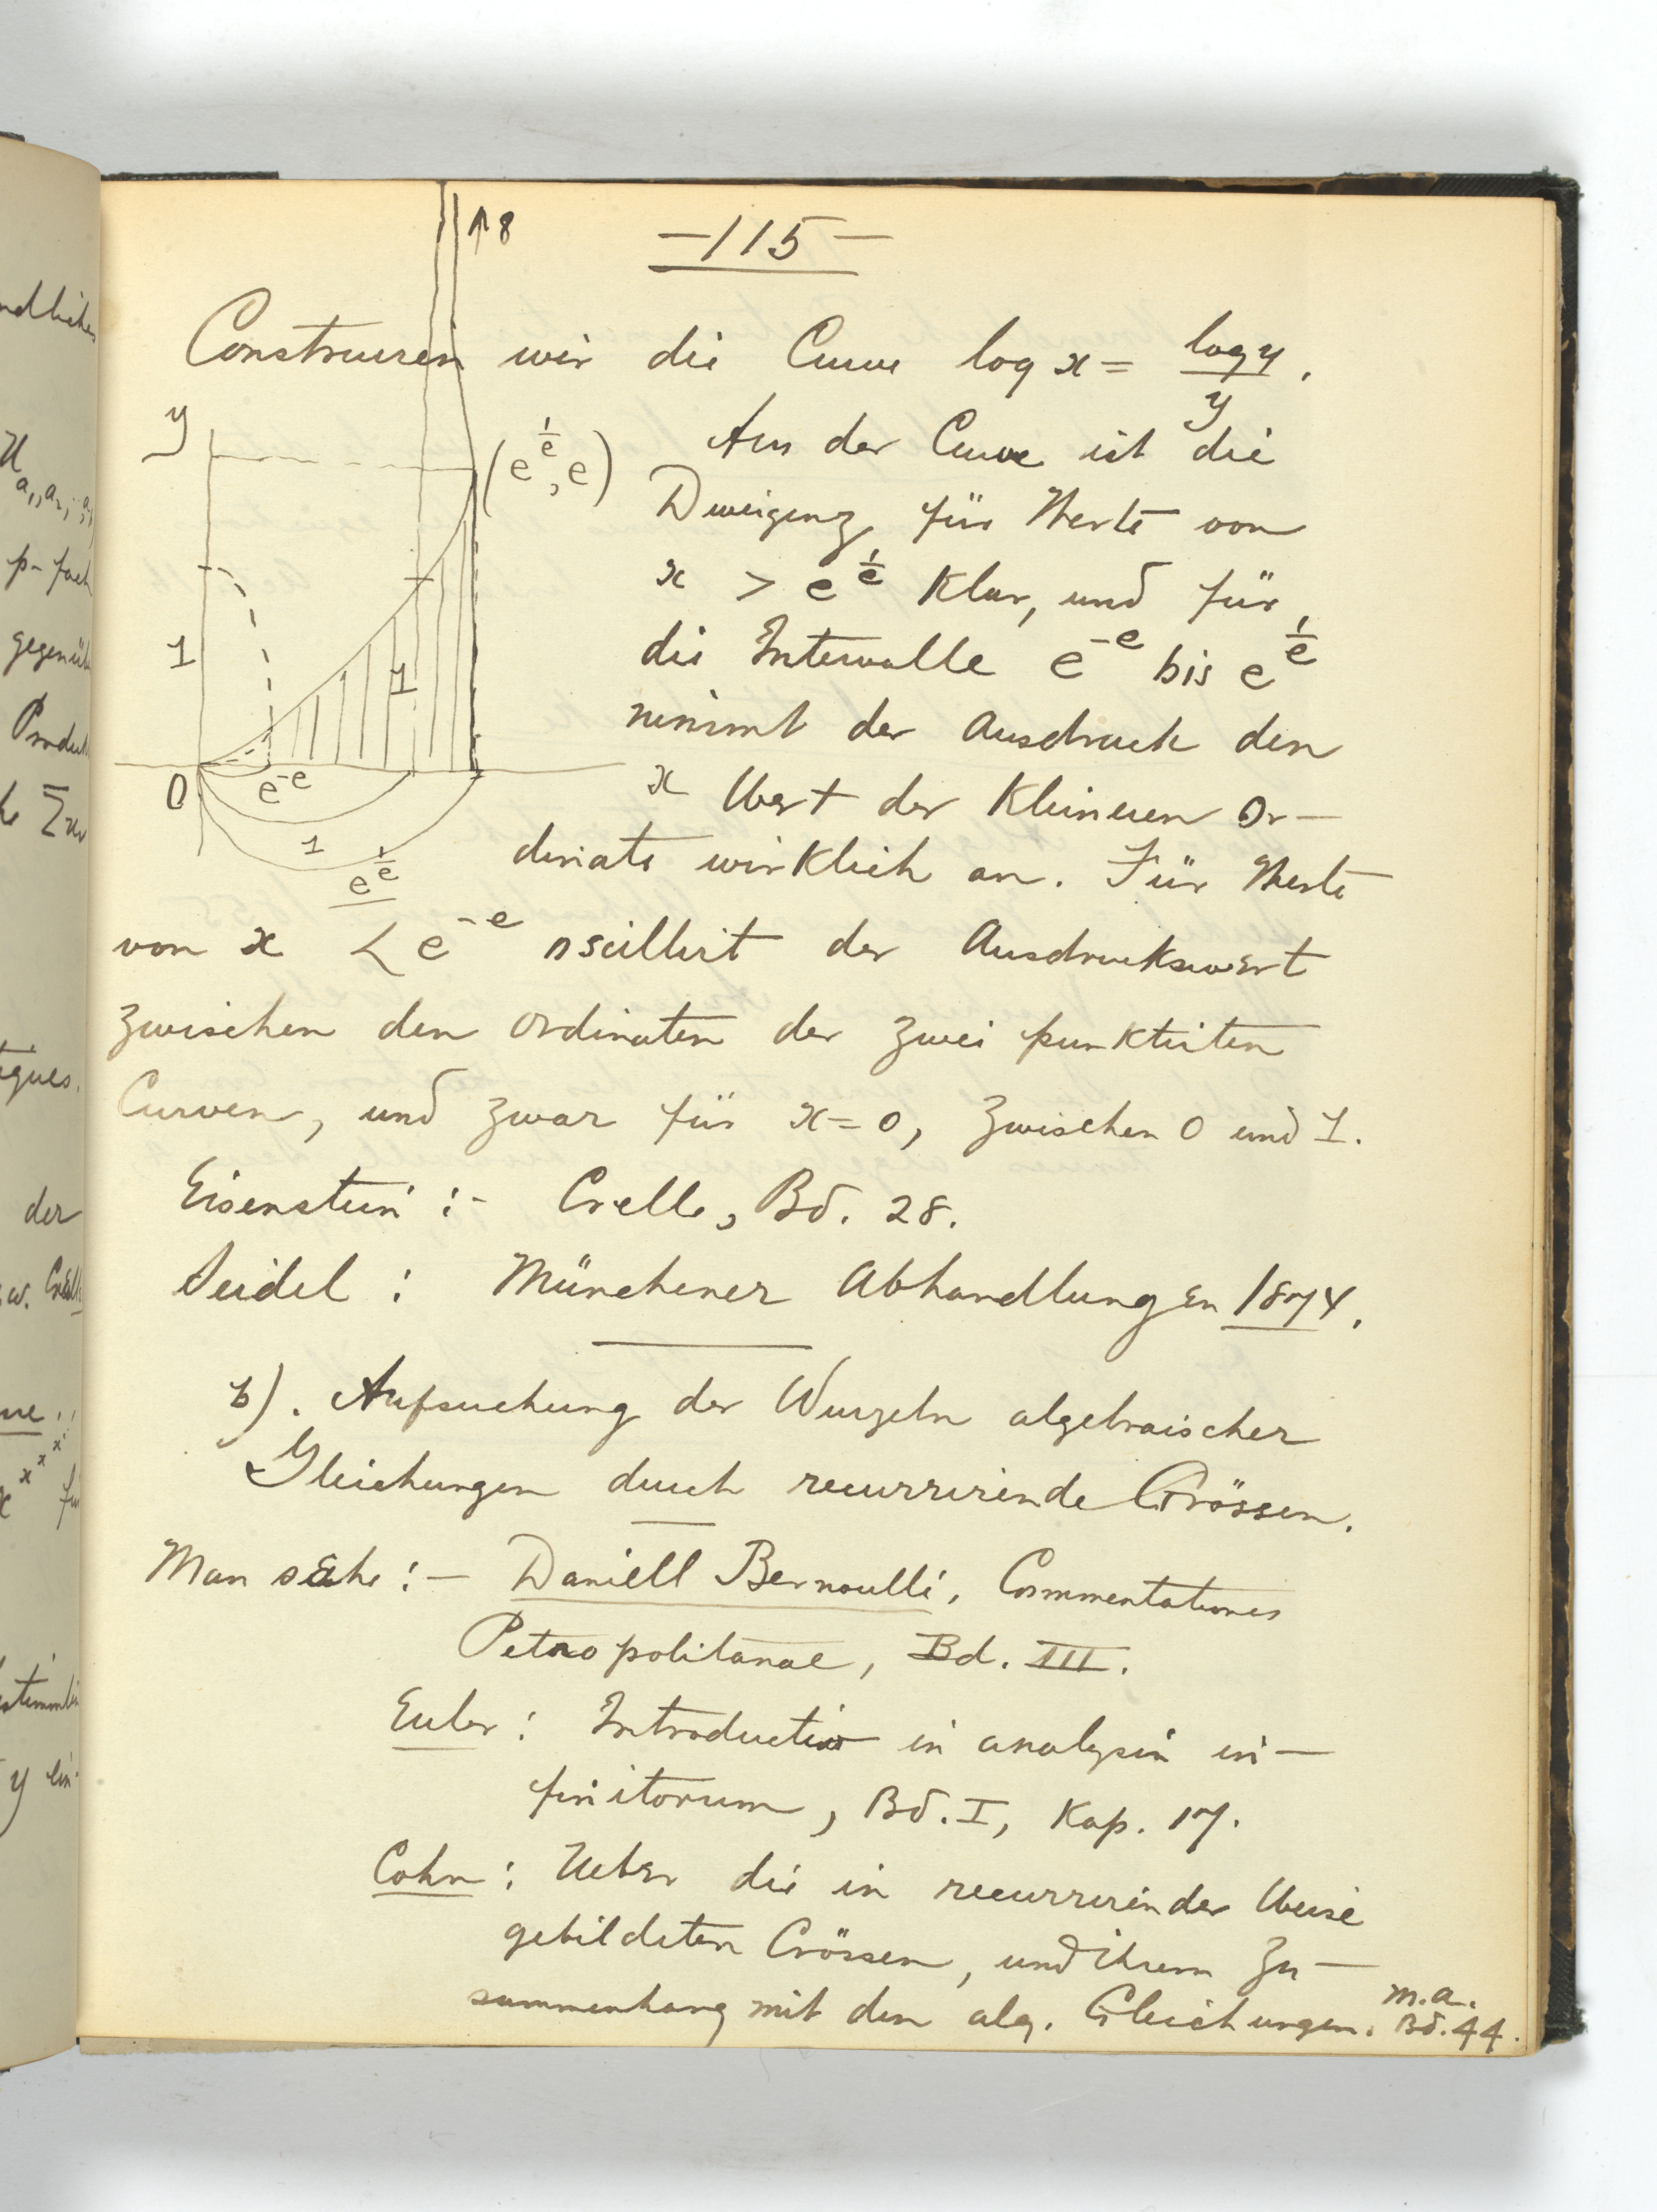 —115—
Construiren wir die Curve log x = log y / y.
Aus der Curve ist die
Divergenz für Werte von
x > e^{1/e} Klar, und für
die Intervalle e^{-e} bis e^{1/e}
nimmt der Ausdruck den
x Wert der Kleineren Or—
dinate wirklich an. Für Werte
von x < e^{-e} oscillirt der Ausdruckswert
zwischen den Ordinaten der zwei punktirten
Curven, und zwar für x=0, zwischen 0 und 1.
Eisenstein :- Crelle, Bd. 28.
Seidel : Münchener Abhandlungen 1874.
b). Aufsuchung der Wurzeln algebraischer
Gleichungen durch recurrirende Grössen.
Man sehe :— Daniell Bernoulli, Commentationes
Petropolitanae, Bd. III.
Euler : Introductio in analysin in—
finitorum, Bd. I, Kap. 17.
Cohn : Ueber die in recurrirender Weise
gebildeten Grössen, und ihrem Zu—
sammenhang mit den alg. Gleichungen. m.a.
Bd. 44.
↑8
y
(e^{1/e}, e)
1
1
0
e^{-e}
1
e^{1/e}